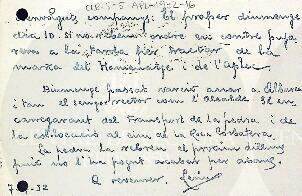 CIR-5-5 API-19-2-16
Benvolguts companys: El proper diumenge
dia 10. si no rebem ordre en contra puja
rem a la tarda per tractar de la
marxa del Homenatge i de l'aplec
Diumenge passat varem anar a Ribera
i tant el senyor rector com l'Alcalde se en
carregaran del transport de la pedra i de
la col·locació al cim de la Roca Corbatera.
La pedra la rebren el proxim dilluns
puix no l'ha pogut acabar per abans.
A reveurer.
7-32